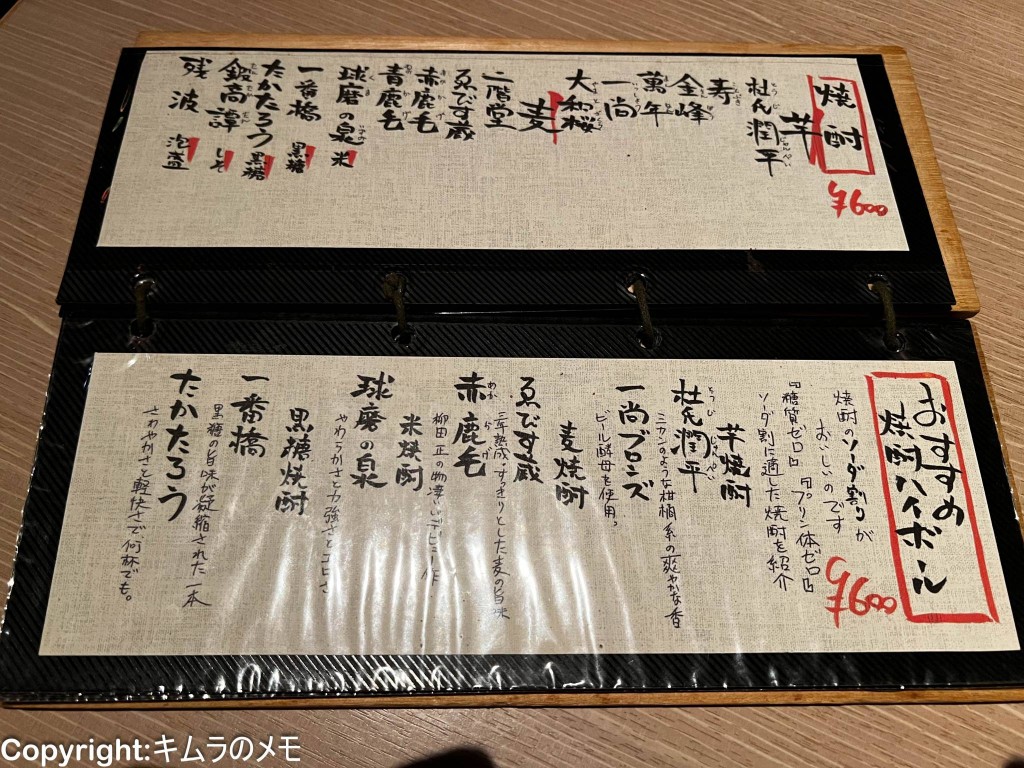 焼酎
¥600
芋
杜氏潤平
寿
金峰
萬年
一尚
大和桜
麦
二階堂
ゑびす蔵
赤鹿毛
青鹿毛
球磨の泉 米
一番橋 黒糖
たかたろう 黒糖
鍛高譚 しそ
残波 泡盛
おすすめ
焼酎ハイボール
¥600
焼酎のソーダ割りが
おいしいのです
『糖質ゼロ』『プリン体ゼロ』
ソーダ割に適した焼酎を紹介
芋焼酎
杜氏潤平
ミカンのような柑橘系の爽やかな香
一尚ブロンズ
ビール酵母を使用。
麦焼酎
ゑびす蔵
三年熟成、すっきりとした麦の旨味
赤鹿毛
柳田正の物凄いデビュー作
米焼酎
球磨の泉
やわらかさと力強さとコロさ
黒糖焼酎
一番橋
黒糖の旨味が凝縮された一本
たかたろう
さわやかさと軽快さで、何杯でも。
Copyright:キムラのメモ